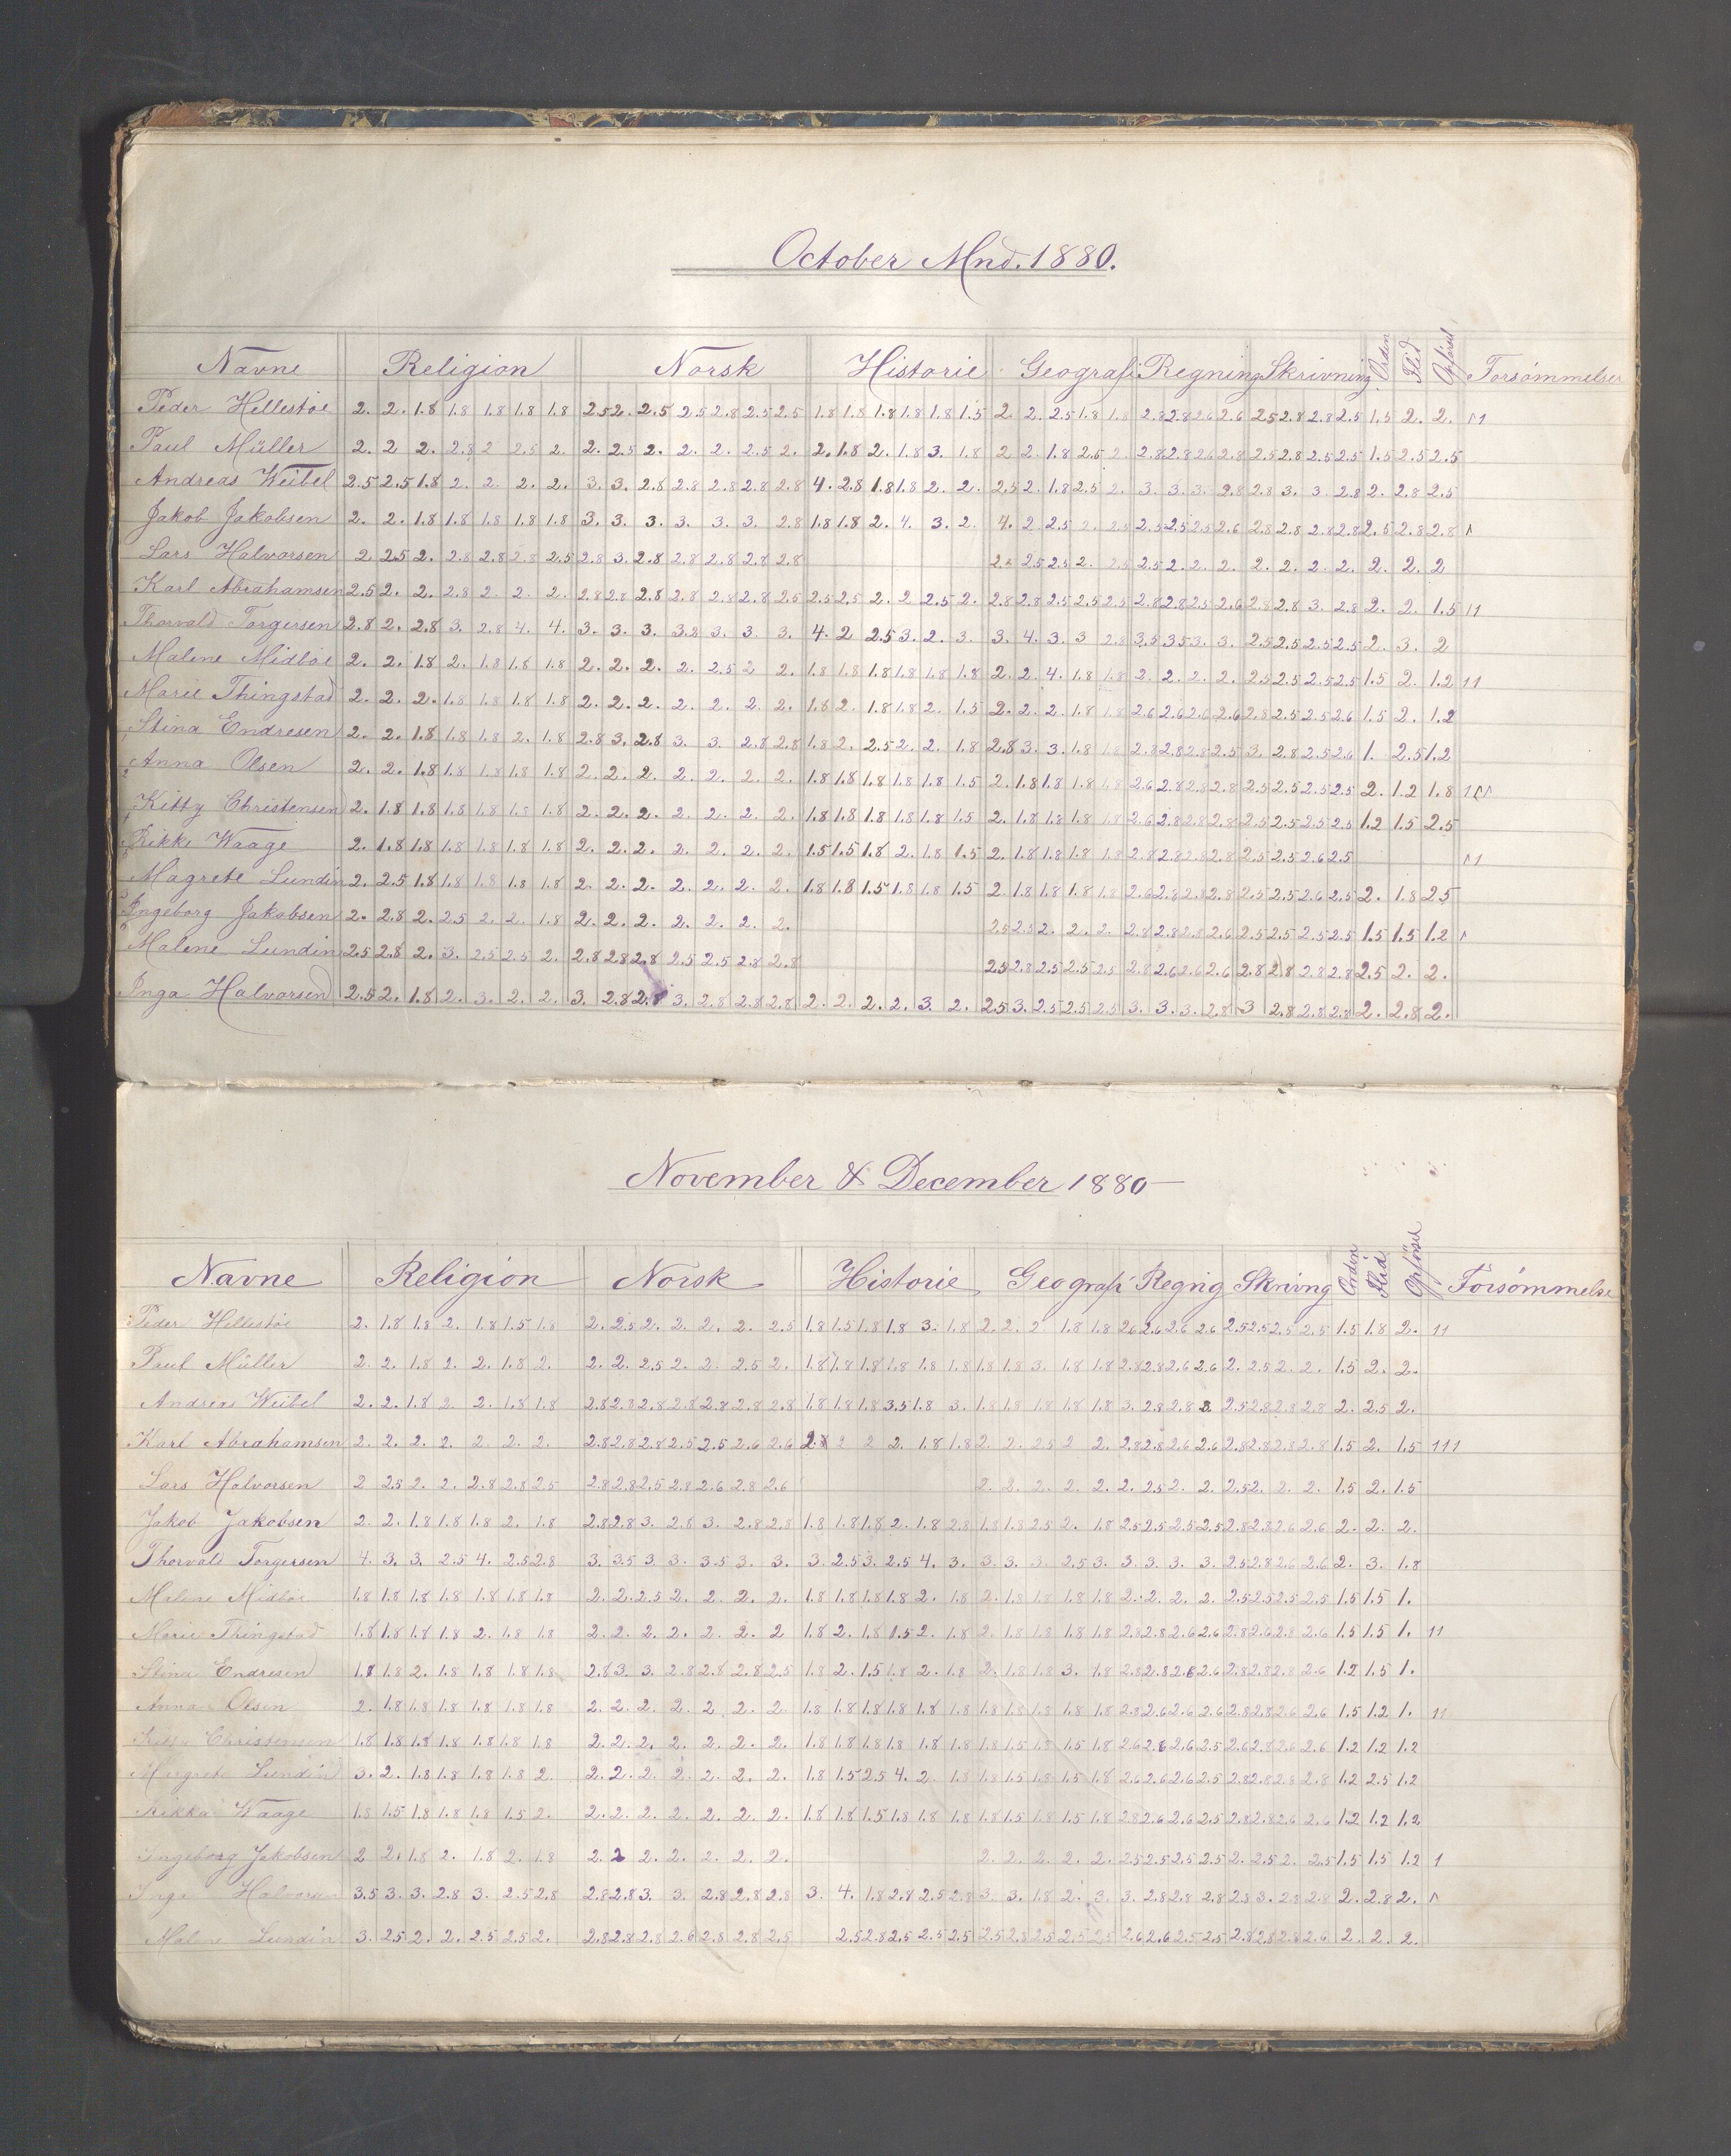 October Mnd. 1880.
Navne Religion Norsk Historie Geografi Regning Skrivning Orden Flid Opførsel Forsømmelser
Peder Hellestøe 2. 2. 1.8 1.8 1.8 1.8 1.8 2.5 2. 2.5 2.5 2.8 2.5 2.5 1.8 1.8 1.8 1.8 1.8 1.5 2. 2. 2.5 1.8 1.8 2.8 2.8 2.6 2.6 2.5 2.8 2.8 2.5 1.5 2. 2. 11
Paul Müller 2. 2. 2. 2.8 2 2.5 2. 2. 2.5 2. 2. 2. 2.5 2. 2. 1.8 2. 1.8 3. 1.8 2 2. 1.8 2.5 2. 2.8 2.8 2.6 2.8 2.5 2.8 2.5 2.5 1.5 2.5 2.5
Andreas Weibel 2.5 2.5 1.8 2. 2. 2. 2. 3. 3. 2.8 2.8 2.8 2.8 2.8 4. 2.8 1.8 1.8 2. 2. 2.5 2. 1.8 2.5 2. 3. 3. 3. 2.8 2.8 3. 3. 2.8 2. 2.8 2.5
Jakob Jakobsen 2. 2. 1.8 1.8 1.8 1.8 1.8 3. 3. 3. 3. 3. 3. 2.8 1.8 1.8 2. 4. 3. 2. 4. 2 2.5 2. 2.5 2.5 2.5 2.5 2.6 2.8 2.8 2.8 2.8 2.5 2.8 2.8 1
Lars Halvorsen 2. 2.5 2. 2.8 2.8 2.8 2.5 2.8 3. 2.8 2.8 2.8 2.8 2.8 2.5 2.5 2. 2.5 2.5 2. 2. 2. 2. 2. 2. 2. 2. 2. 2
Karl Abrahamsen 2.5 2. 2. 2.8 2. 2. 2. 2.8 2.8 2.8 2.8 2.8 2.8 2.5 2.5 2.5 2. 2 2.5 2. 2.8 2.8 2.5 2.5 2.5 2.8 2.8 2.5 2.6 2.8 2.8 3. 2.8 2. 2. 1.5 11
Thorvald Torgersen 2.8 2. 2.8 3. 2.8 4. 4. 3. 3. 3. 3.2 3. 3. 3. 4. 2 2.5 3. 2. 3. 3. 4. 3. 3 2.8 3.5 3.5 3. 3. 2.5 2.5 2.5 2.5 2. 3. 2
Malene Midbøe 2. 2. 1.8 2. 1.8 1.8 1.8 2. 2. 2. 2. 2.5 2 2. 1.8 1.8 1.8 1.8 1.8 1.8 2. 2. 4. 1.8 1.8 2. 2. 2. 2. 2.5 2.5 2.5 2.5 1.5 2. 1.2 11
Marie Thingstad 2. 2. 2. 1.8 1.8 1.8 1.8 2. 2. 2. 2. 2. 2. 2. 1.8 2. 1.8 1.8 2. 1.5 2. 2. 2. 1.8 1.8 2.6 2.6 2.6 2.6 2.8 2.5 2.5 2.6 1.5 2. 1.2
Stina Endresen 2. 2. 1.8 1.8 1.8 2. 1.8 2.8 3. 2.8 3. 3. 2.8 2.8 1.8 2. 2.5 2. 2. 1.8 2.8 3. 3. 1.8 1.8 2.8 2.8 2.8 2.5 3. 2.8 2.5 2.6 1. 2.5 1.2
Anna Olsen 2. 2. 1.8 1.8 1.8 1.8 1.8 2. 2. 2. 2. 2. 2. 2. 1.8 1.8 1.8 1.8 1.8 1.5 2. 1.8 1.8 1.8 1.8 2.6 2.8 2.8 2.8 2.5 2.5 2.5 2.5 2. 1.2 1.8 111
Kitty Christensen 2. 1.8 1.8 1.8 1.8 1.8 1.8 2. 2. 2. 2. 2. 2. 2. 1.8 1.8 1.8 1.8 1.8 1.5 2. 1.8 1.8 1.8 1.8 2.6 2.8 2.8 2.8 2.5 2.5 2.5 2.5 1.2 1.5 2.5
Rikke Waage 2. 1.8 1.8 1.8 1.8 1.8 1.8 2. 2. 2. 2. 2. 2. 2. 1.5 1.5 1.8 2. 1.8 1.5 2. 1.8 1.8 1.8 1.8 2.8 2.8 2.8 2.8 2.5 2.5 2.6 2.5 11
Magrete Lundin 2. 2.5 1.8 1.8 1.8 1.8 1.8 2. 2. 2. 2. 2. 2. 2. 1.8 1.8 1.5 1.8 1.8 1.5 2. 1.8 1.8 1.8 1.8 2.6 2.8 2.8 2.8 2.5 2.5 2.6 2.5 2. 1.8 2.5
Ingeborg Jakobsen 2. 2.8 2. 2.5 2. 2. 1.8 2. 2. 2. 2. 2. 2. 2. 2.5 2.5 2. 2. 2. 2.8 2.8 2.8 2.6 2.5 2.5 2.5 2.5 1.5 1.5 1.2 1
Malene Lundin 2.5 2.8 2. 3. 2.5 2.5 2. 2.8 2.8 2.8 2.5 2.5 2.8 2.8 2.5 2.8 2.5 2.5 2.5 2.8 2.6 2.6 2.6 2.8 2.8 2.8 2.8 2.5 2. 2.
Inga Halvorsen 2.5 2. 1.8 2. 3. 2. 2. 3. 2.8 2.8 3. 2.8 2.8 2.8 2. 2. 2. 2. 3. 2. 2.5 3. 2.5 2.5 2.5 3. 3. 3. 2.8 3 2.8 2.8 2.8 2. 2.8 2.
November & December 1880
Navne Religion Norsk Historie Geografi Regnig Skrivng Orden Flid Opførsel Forsømmelse
Peder Hellestøe 2. 1.8 1.8 2. 1.8 1.5 1.8 2. 2.5 2. 2. 2. 2. 2.5 1.8 1.5 1.8 1.8 3. 1.8 2. 2. 2 1.8 1.8 2.6 2.6 2.6 2.6 2.5 2.5 2.5 2.5 1.5 1.8 2. 11
Paul Müller 2. 2. 1.8 2. 2. 1.8 2. 2. 2. 2.5 2. 2. 2.5 2. 1.8 1.8 1.8 1.8 1.8 1.8 1.8 1.8 3. 1.8 1.8 2.8 2.8 2.6 2.6 2. 2.5 2. 2. 1.5 2. 2.
Andreas Weibel 2. 2. 1.8 2. 2. 1.8 1.8 2.8 2.8 2.8 2.8 2.8 2.8 2.8 1.8 1.8 1.8 3.5 1.8 3. 1.8 1.8 1.8 1.8 1.8 3. 2.8 2.8 3 2.5 2.8 2.8 2.8 2. 2.5 2.
Karl Abrahamsen 2. 2. 2. 2. 2. 2. 2. 2.8 2.8 2.8 2.5 2.5 2.6 2.6 2. 2 2 2. 1.8 1.8 2. 2. 2.5 2 2. 2.8 2.8 2.6 2.6 2.8 2.8 2.8 2.8 1.5 2. 1.5 111
Lars Halvorsen 2 2.5 2. 2. 2.8 2.8 2.5 2.8 2.8 2.5 2.8 2.6 2.8 2.6 2. 2. 2. 2. 2. 2. 2.5 2. 2. 2.5 2. 2. 2. 1.5 2. 1.5
Jakob Jakobsen 2. 2. 1.8 1.8 1.8 2. 1.8 2.8 2.8 3. 2.8 3. 2.8 2.8 1.8 1.8 1.8 2. 1.8 2.8 1.8 1.8 2.5 2. 1.8 2.5 2.5 2.5 2.5 2.8 2.8 2.6 2.6 2. 2. 2.
Thorvald Torgersen 4. 3. 3. 2.5 4. 2.5 2.8 3. 3.5 3. 3. 3.5 3. 3. 3. 2.5 3. 2.5 4. 3. 3. 3. 3. 2.5 3. 3. 3. 3. 3. 2.5 2.8 2.6 2.6 2. 3. 1.8
Malene Midbøe 1.8 1.8 1.8 1.8 1.8 1.8 1.8 2. 2. 2.5 2. 2. 2. 2. 1.8 1.8 1.8 1.8 2. 1.8 2. 1.8 1.8 1.8 1.8 2. 2. 2. 2. 2.5 2.5 2.5 2.5 1.5 1.5 1.
Marie Thingstad 1.8 1.8 1.8 1.8 2. 1.8 1.8 2. 2. 2. 2. 2. 2. 2 1.8 2. 1.8 1.5 2. 1.8 2. 1.8 1.8 1.8 1.8 2.8 2.8 2.6 2.6 2.8 2.6 2.8 2.6 1.5 1.5 1. 11
Stina Endresen 1.8 1.8 2. 1.8 1.8 1.8 1.8 2.8 3. 3. 2.8 2.8 2.8 2.5 1.8 2. 1.5 1.8 2. 1.8 2. 1.8 1.8 3. 1.8 2.8 2.8 2.6 2.6 2.8 2.8 2.8 2.6 1.2 1.5 1.
Anna Olsen 2. 1.8 1.8 1.8 1.8 1.8 1.8 2. 2. 2. 2. 2. 2. 2 1.8 1.8 1.8 1.8 1.8 1.8 1.8 1.8 1.8 1.8 1.8 2.8 2.6 2.6 2.6 2.8 2.8 2.6 2.6 1.5 1.2 1. 11
Kitty Christensen 1.8 1.8 1.8 1.8 1.8 1.8 1.8 2. 2. 2. 2. 2. 2. 2. 1.8 1.8 1.8 1.8 1.8 1.8 1.8 1.5 1.8 1.5 1.8 2.6 2.6 2.6 2.5 2.6 2.8 2.6 2.6 1.2 1.2 1.2
Margrete Lundin 3. 2. 1.8 1.8 1.8 1.8 2. 2. 2. 2. 2. 2. 2. 2. 1.8 1.5 2.5 4. 2. 1.8 1.8 1.5 1.8 1.5 1.8 2.6 2.6 2.6 2.5 2.8 2.8 2.8 2.8 1.2 2.5 1.2
Rikka Waage 1.8 1.5 1.8 1.8 1.8 1.5 2. 2. 2. 2. 2. 2. 2. 2. 1.8 1.8 1.5 1.8 1.8 1.8 1.8 1.5 1.8 1.5 1.8 2.8 2.6 2.6 2.5 2.8 2.8 2.6 2.6 1.2 1.2 1.2
Ingeborg Jakobsen 2 2. 1.8 2. 1.8 2. 1.8 2. 2 2. 2. 2. 2. 2. 2. 2. 2. 2. 2. 2.5 2.5 2.5 2.5 2. 2.5 2. 2.5 1.5 1.5 1.2 1
Inga Halvorsen 3.5 3. 3. 2.8 3. 2.5 2.8 2.8 2.8 3. 3. 2.8 2.8 2.8 3. 4. 1.8 2.8 2.5 2.8 3. 3. 1.8 2. 3. 3. 2.8 2.8 2.8 2.8 3. 2.8 2.8 2. 2.8 2. 1
Malene Lundin 3. 2.5 2. 2. 2.5 2.5 2. 2.8 2.8 2.8 2.6 2.8 2.8 2.5 2.5 2.8 2.5 2.5 2.5 2.5 2.8 2.5 2.5 2.5 2.6 2.6 2.5 2.5 2.8 2.8 2.8 2.6 2. 2. 2.